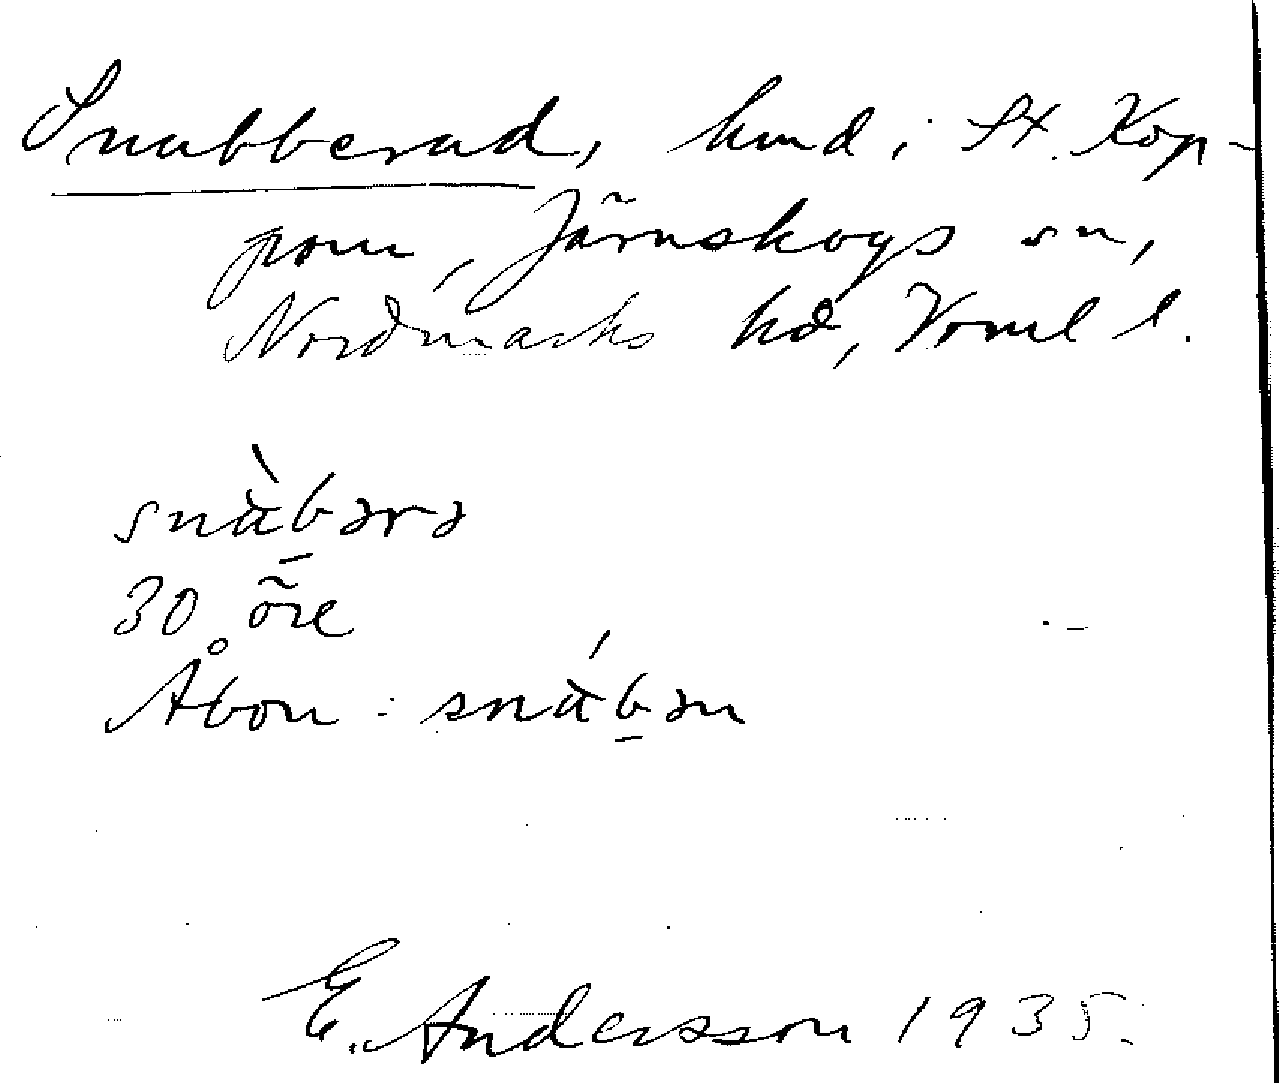 Snabberad, hmd i St. Kop-
pom, Järnskogs sn,
Nordmarks hd, Verml l.
snàbərə
30 öre
Åbon: snábən
E. Andersson 1935.